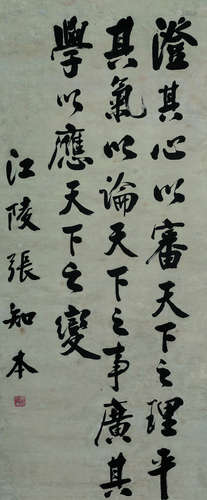 澄其心以審天下之理平
其氣以論天下之事廣其
學以應天下之變
江陵張知本